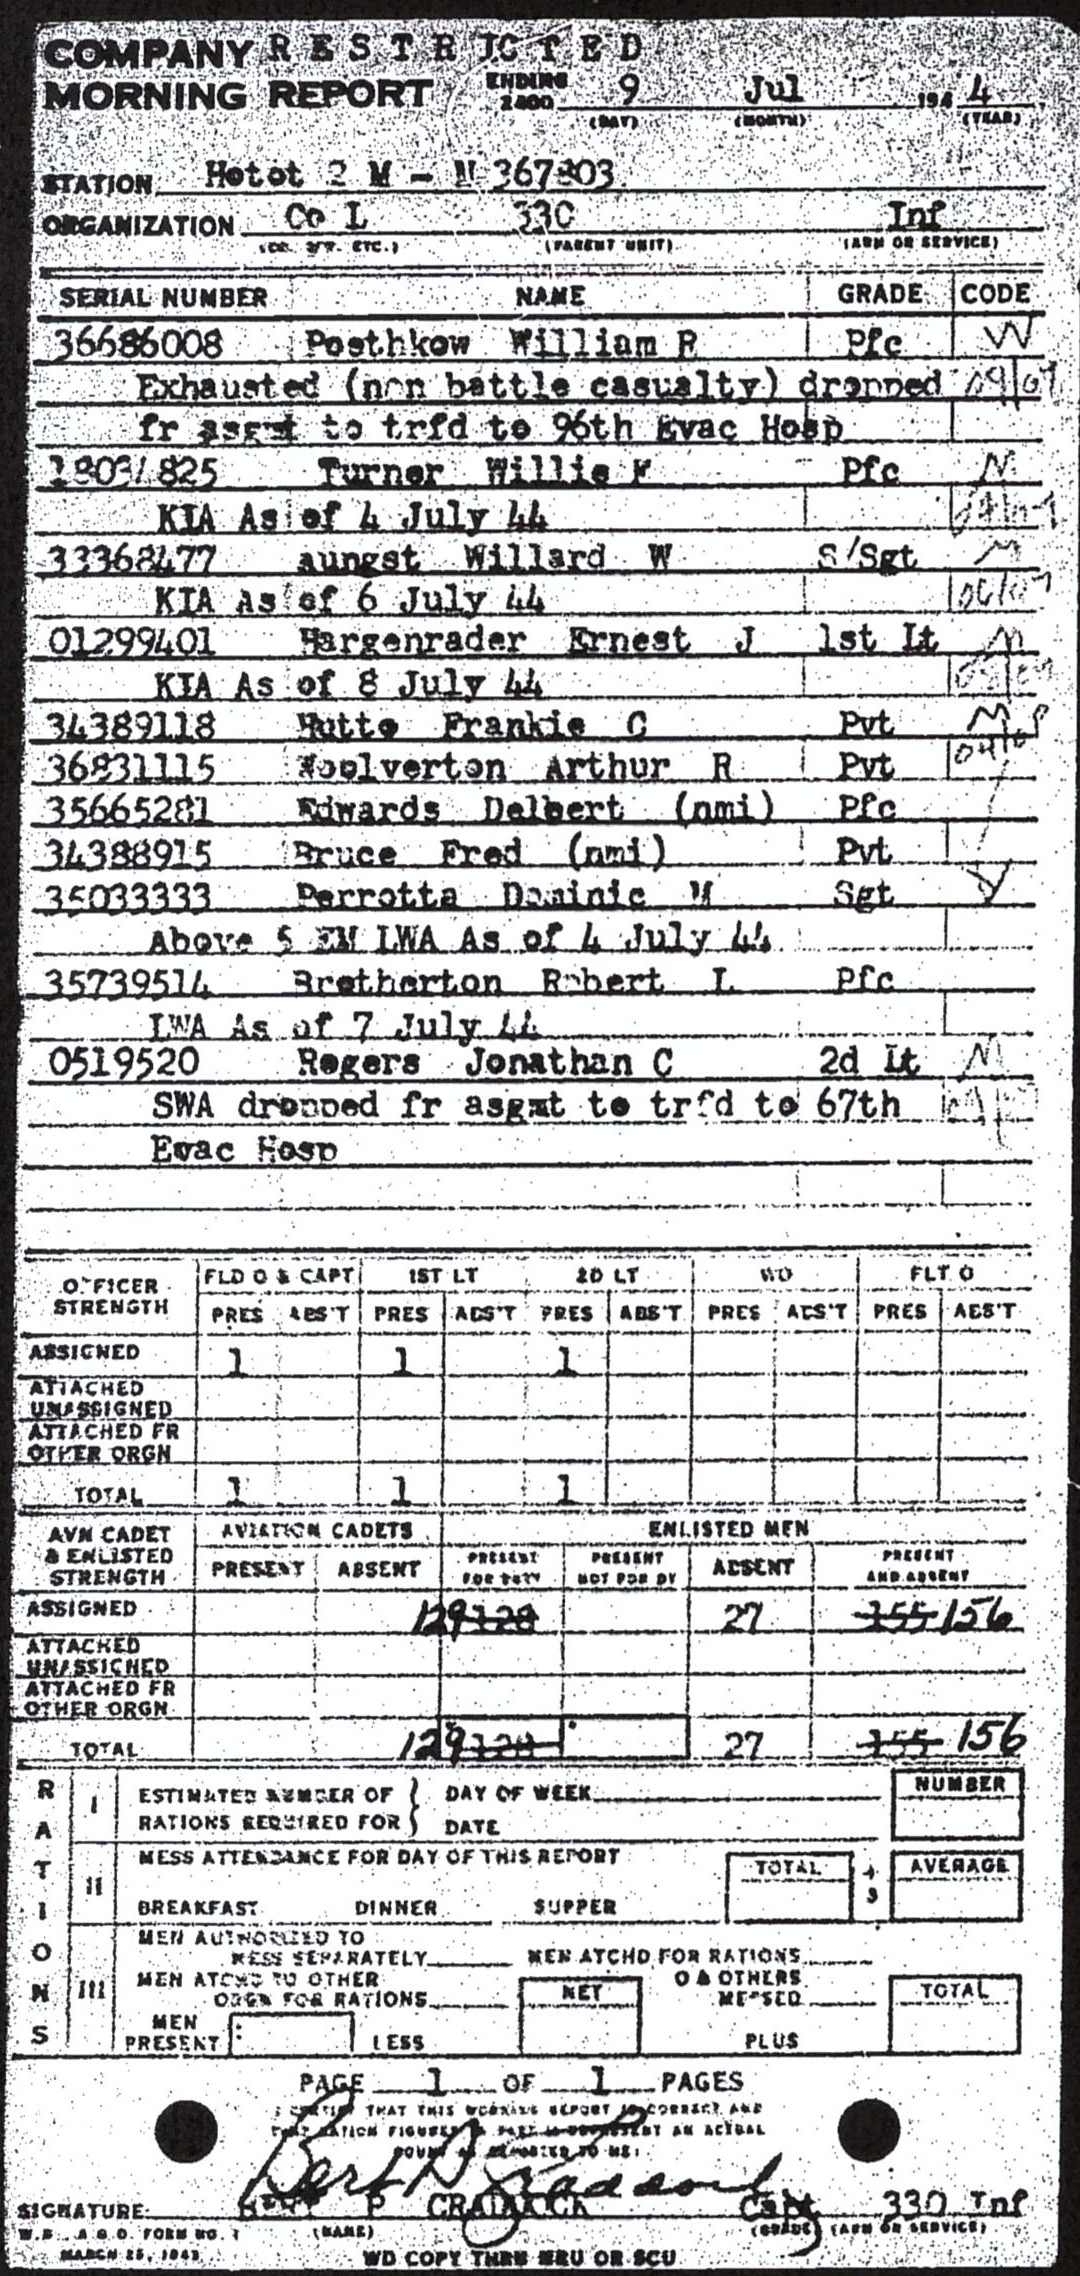 COMPANY RESTRICTED
MORNING REPORT ENDING 2400 9 Jul 194 4
(DAY) (MONTH) (YEAR)
STATION Hotot 2 M - N 367803
ORGANIZATION Co L 330 Inf
(CO. BTRY. ETC.) (PARENT UNIT) (ARM OR SERVICE)
SERIAL NUMBER NAME GRADE CODE
36686008 Posthkow William R Pfc W
Exhausted (non battle casualty) dropped 09/07
fr asgmt to trfd to 96th Evac Hosp
Turner Willie F Pfc
KIA As of 4 July 44
33368477 aungst Willard W S/Sgt
KIA As of 6 July 44 06/07
01299401 Hargenrader Ernest J 1st Lt
KIA As of 8 July 44
34389118 Hutto Frankie C Pvt
36831115 Woolverton Arthur R Pvt
35665281 Edwards Delbert (nmi) Pfc
34388915 Bruce Fred (nmi) Pvt
35033333 Perrotta Dominic M Sgt
Above 5 EM LWA As of 4 July 44
35739514 Bretherton Robert L Pfc
LWA As of 7 July 44
0519520 Rogers Jonathan C 2d Lt
SWA dropped fr asgmt to trfd to 67th
Evac Hosp
OFFICER STRENGTH FLD O & CAPT 1ST LT 2D LT WO FLT O
PRES ABS'T PRES ABS'T PRES ABS'T PRES ABS'T PRES ABS'T
ASSIGNED 1 1 1
ATTACHED UNASSIGNED
ATTACHED FR OTHER ORGN
TOTAL 1 1 1
AVN CADET & ENLISTED STRENGTH AVIATION CADETS ENLISTED MEN
PRESENT ABSENT PRESENT FOR DUTY PRESENT NOT FOR DY ABSENT PRESENT AND ABSENT
ASSIGNED 129 128 27 155 156
ATTACHED UNASSIGNED
ATTACHED FR OTHER ORGN
TOTAL 129 128 27 155 156
RATIONS
I ESTIMATED NUMBER OF RATIONS REQUIRED FOR DAY OF WEEK DATE NUMBER
II MESS ATTENDANCE FOR DAY OF THIS REPORT TOTAL ÷ 3 AVERAGE
BREAKFAST DINNER SUPPER
III MEN AUTHORIZED TO MESS SEPARATELY MEN ATCHD FOR RATIONS
MEN ATCHD TO OTHER ORGN FOR RATIONS NET O & OTHERS MESSED TOTAL
MEN PRESENT LESS PLUS
PAGE 1 OF 1 PAGES
I CERTIFY THAT THIS MORNING REPORT IS CORRECT AND
THAT RATION FIGURES PART III REPRESENT AN ACTUAL
COUNT AS REPORTED TO ME:
SIGNATURE Capt 330 Inf
W.D., A.G.O. FORM NO. 1 (NAME) (GRADE) (ARM OR SERVICE)
MARCH 25, 1943
WD COPY THRU MRU OR SCU